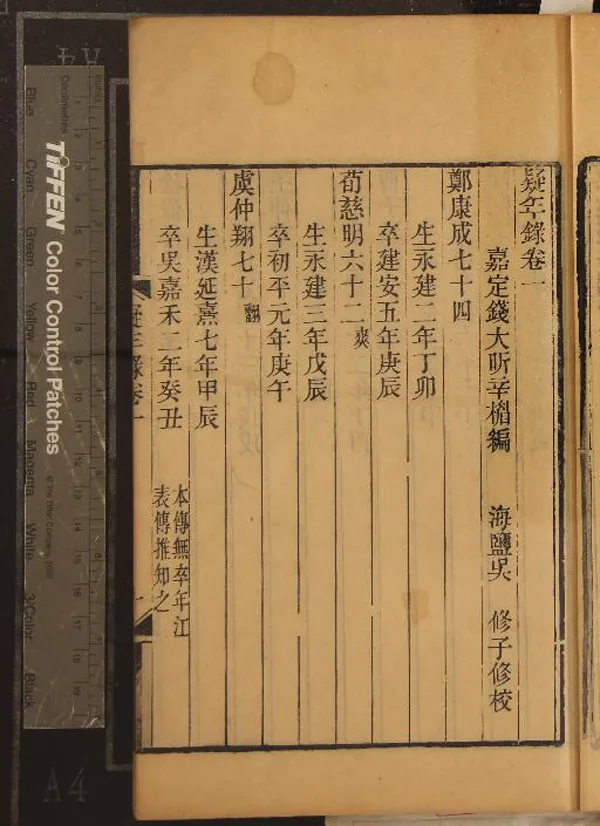 疑年錄卷一
嘉定錢大昕辛楣編　海鹽吳　修子修校
鄭康成七十四
生永建二年丁卯
卒建安五年庚辰
荀慈明六十二爽
生永建三年戊辰
卒初平元年庚午
虞仲翔七十翻
生漢延熹七年甲辰
卒吳嘉禾二年癸丑　本傳無卒年江
表傳推知之
疑年錄卷一
一
TIFFEN Color Control Patches
© The Tiffen Company, 2007
Centimetres
Inches
Blue
Cyan
Green
Yellow
Red
Magenta
White
3/Color
Black
A4
A4